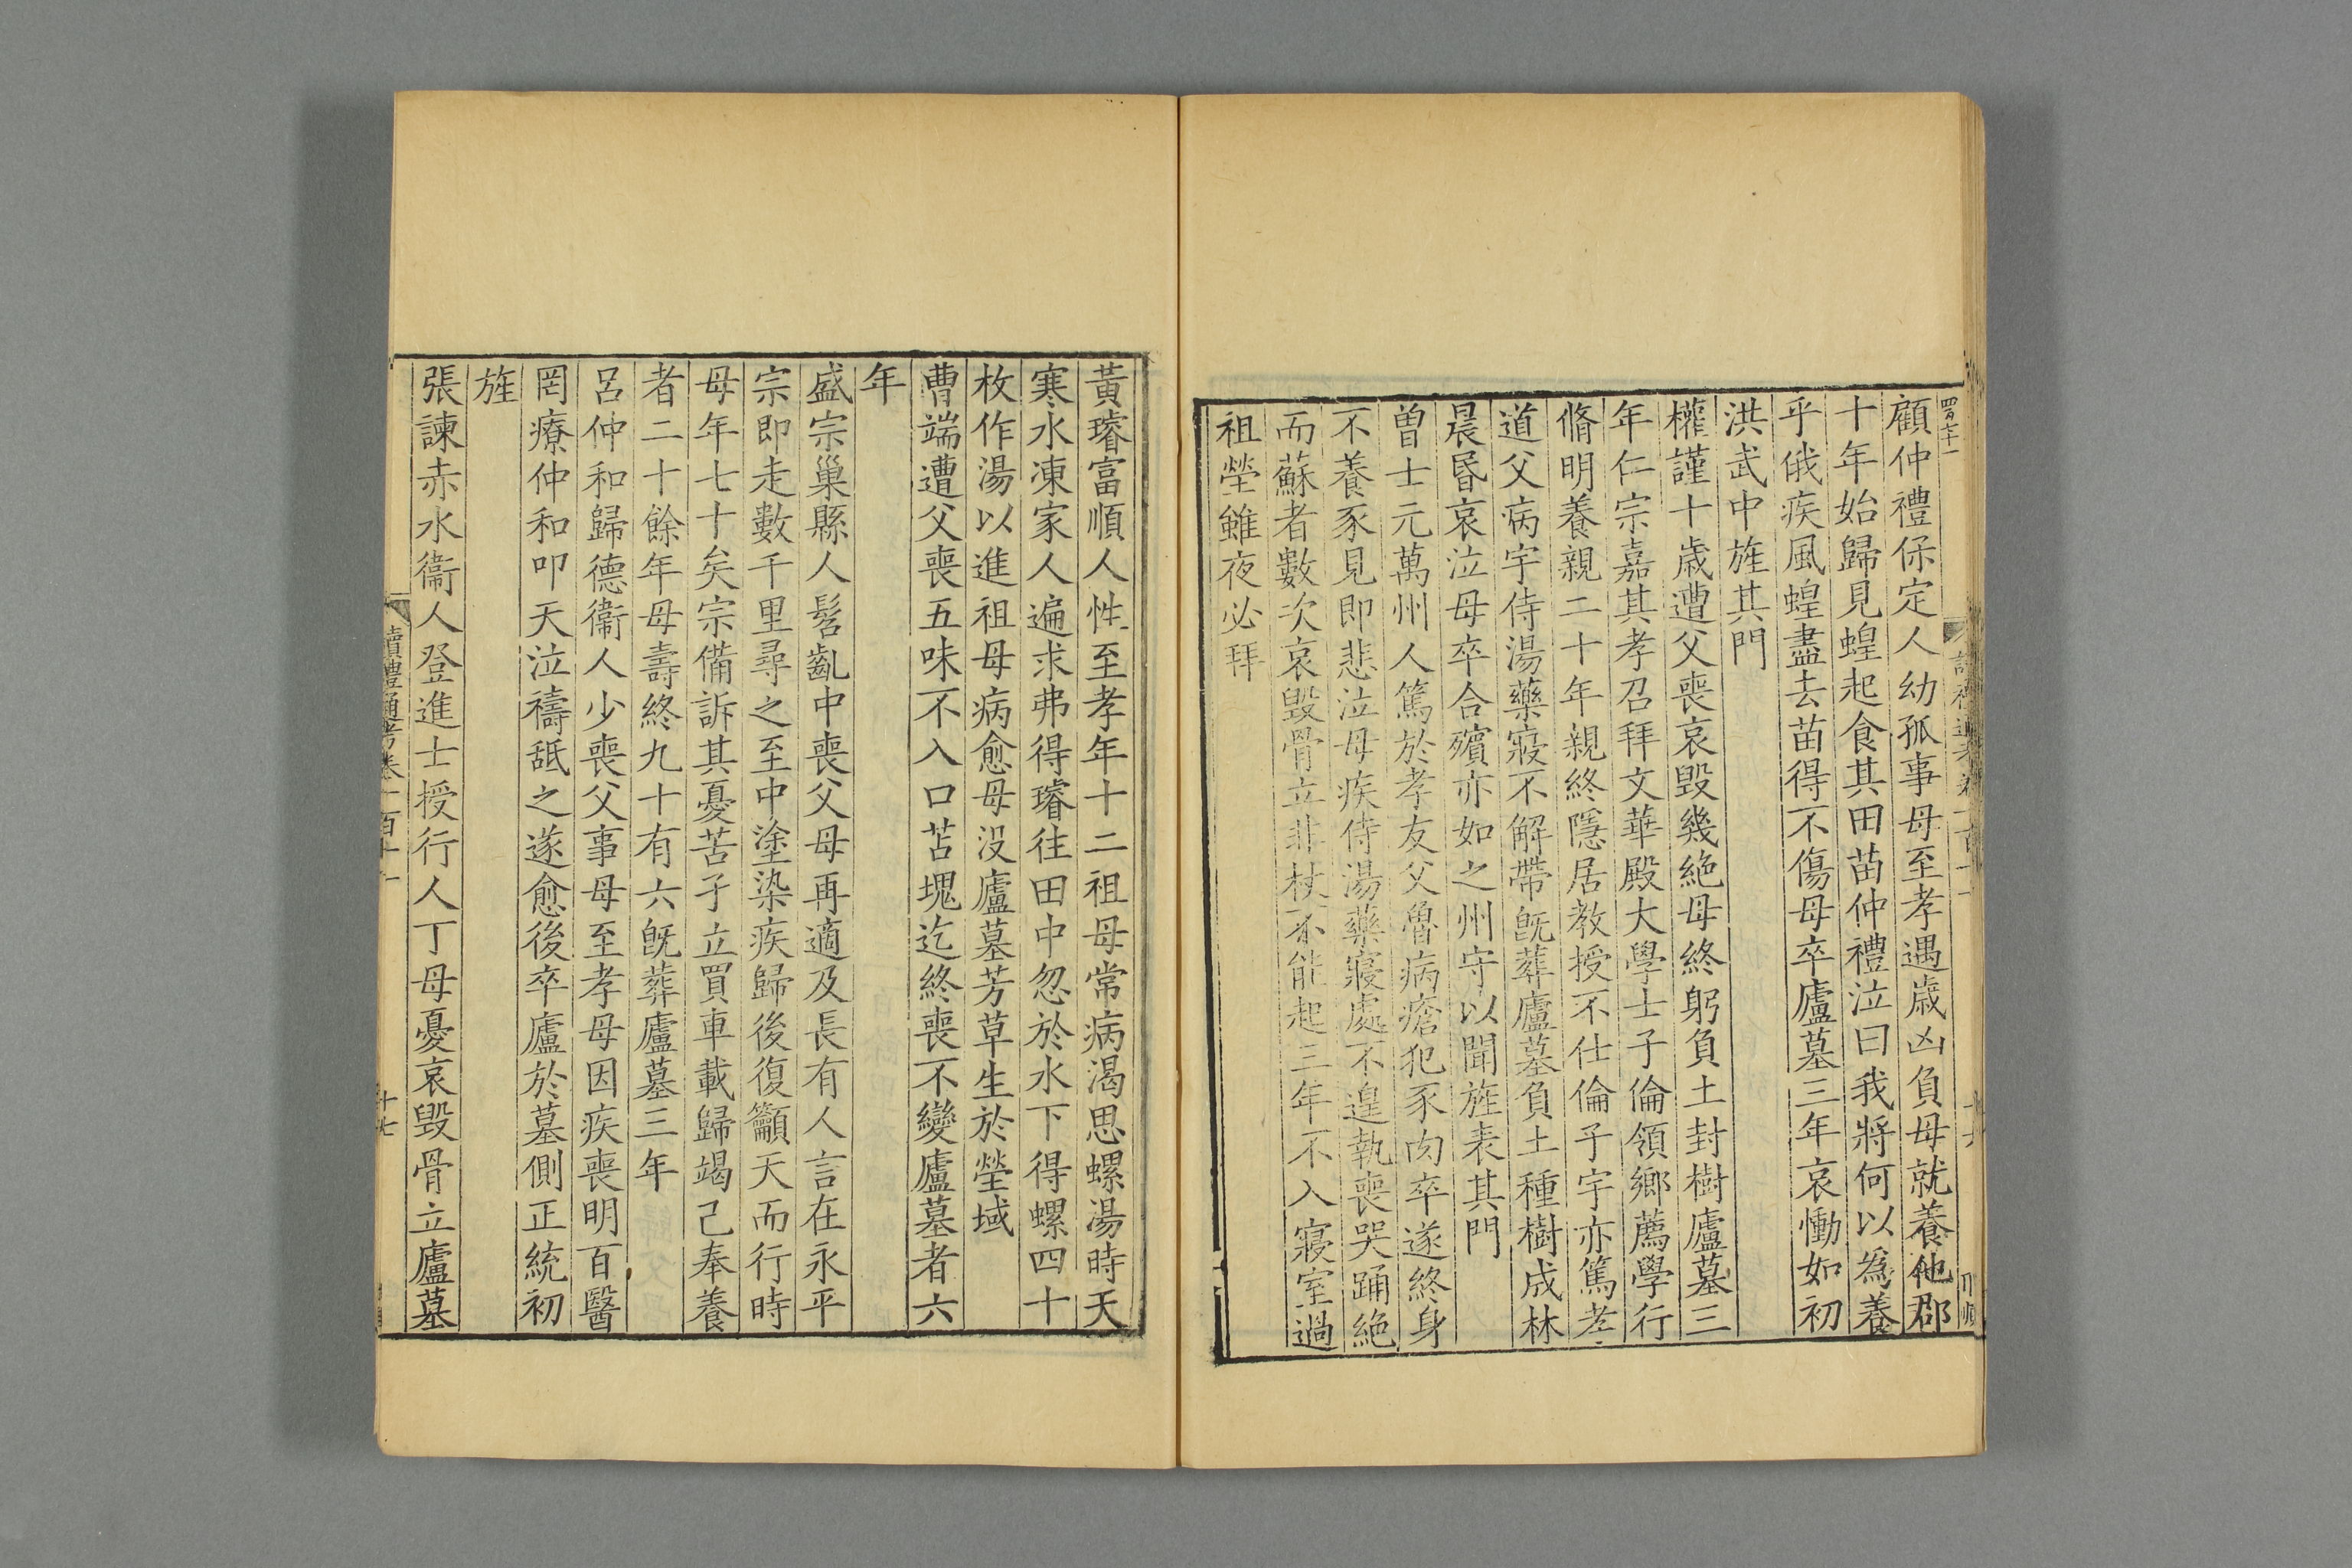 顧仲禮保定人幼孤事母至孝遇歲凶負母就養他郡
十年始歸見蝗起食其田苗仲禮泣曰我將何以爲養
乎俄疾風蝗盡去苗得不傷母卒廬墓三年哀慟如初
洪武中旌其門
權謹十歲遭父喪哀毀幾絶母終躬負土封樹廬墓三
年仁宗嘉其孝召拜文華殿大學士子倫領鄉薦學行
脩明養親二十年親終隱居教授不仕倫子宇亦篤孝
道父病宇侍湯藥寢不解帶旣葬廬墓負土種樹成林
晨昬哀泣母卒合殯亦如之州守以聞旌表其門
曽士元萬州人篤於孝友父魯病瘡犯豕肉卒遂終身
不養豕見即悲泣母疾侍湯藥寢處不遑執喪哭踊絶
而蘇者數次哀毀骨立非杖不能起三年不入寢室過
祖塋雖夜必拜
黃璿富順人性至孝年十二祖母常病渴思螺湯時天
寒水凍家人遍求弗得璿往田中忽於水下得螺四十
枚作湯以進祖母病愈母沒廬墓芳草生於塋域
曹端遭父喪五味不入口苫塊迄終喪不變廬墓者六
年
盛宗巢縣人髫齓中喪父母再適及長有人言在永平
宗即走數千里尋之至中塗染疾歸後復籲天而行時
母年七十矣宗備訴其憂苦孑立買車載歸竭己奉養
者二十餘年母壽終九十有六旣葬廬墓三年
呂仲和歸德衞人少喪父事母至孝母因疾喪明百醫
罔療仲和叩天泣禱舐之遂愈後卒廬於墓側正統初
旌
張諫赤水衞人登進士授行人丁母憂哀毀骨立廬墓
讀禮通考卷一百十一
十七